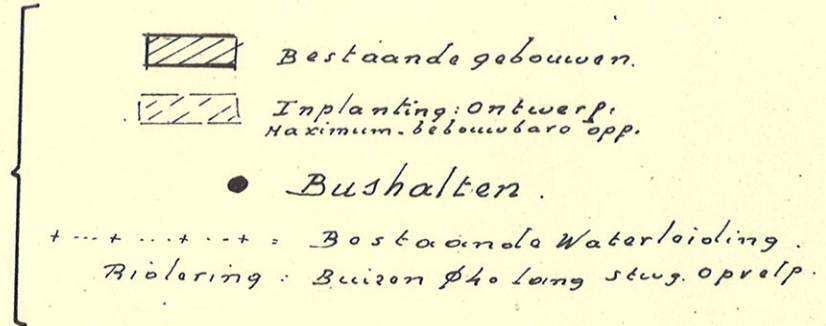 Bestaande gebouwen.
Inplanting: Ontwerp.
Maximum-bebouwbare opp.
Bushalten.
+ ... + ... + ... + = Bestaande Waterleiding.
Riolering: Buizen Ø40 lang stwg. Opvelp.